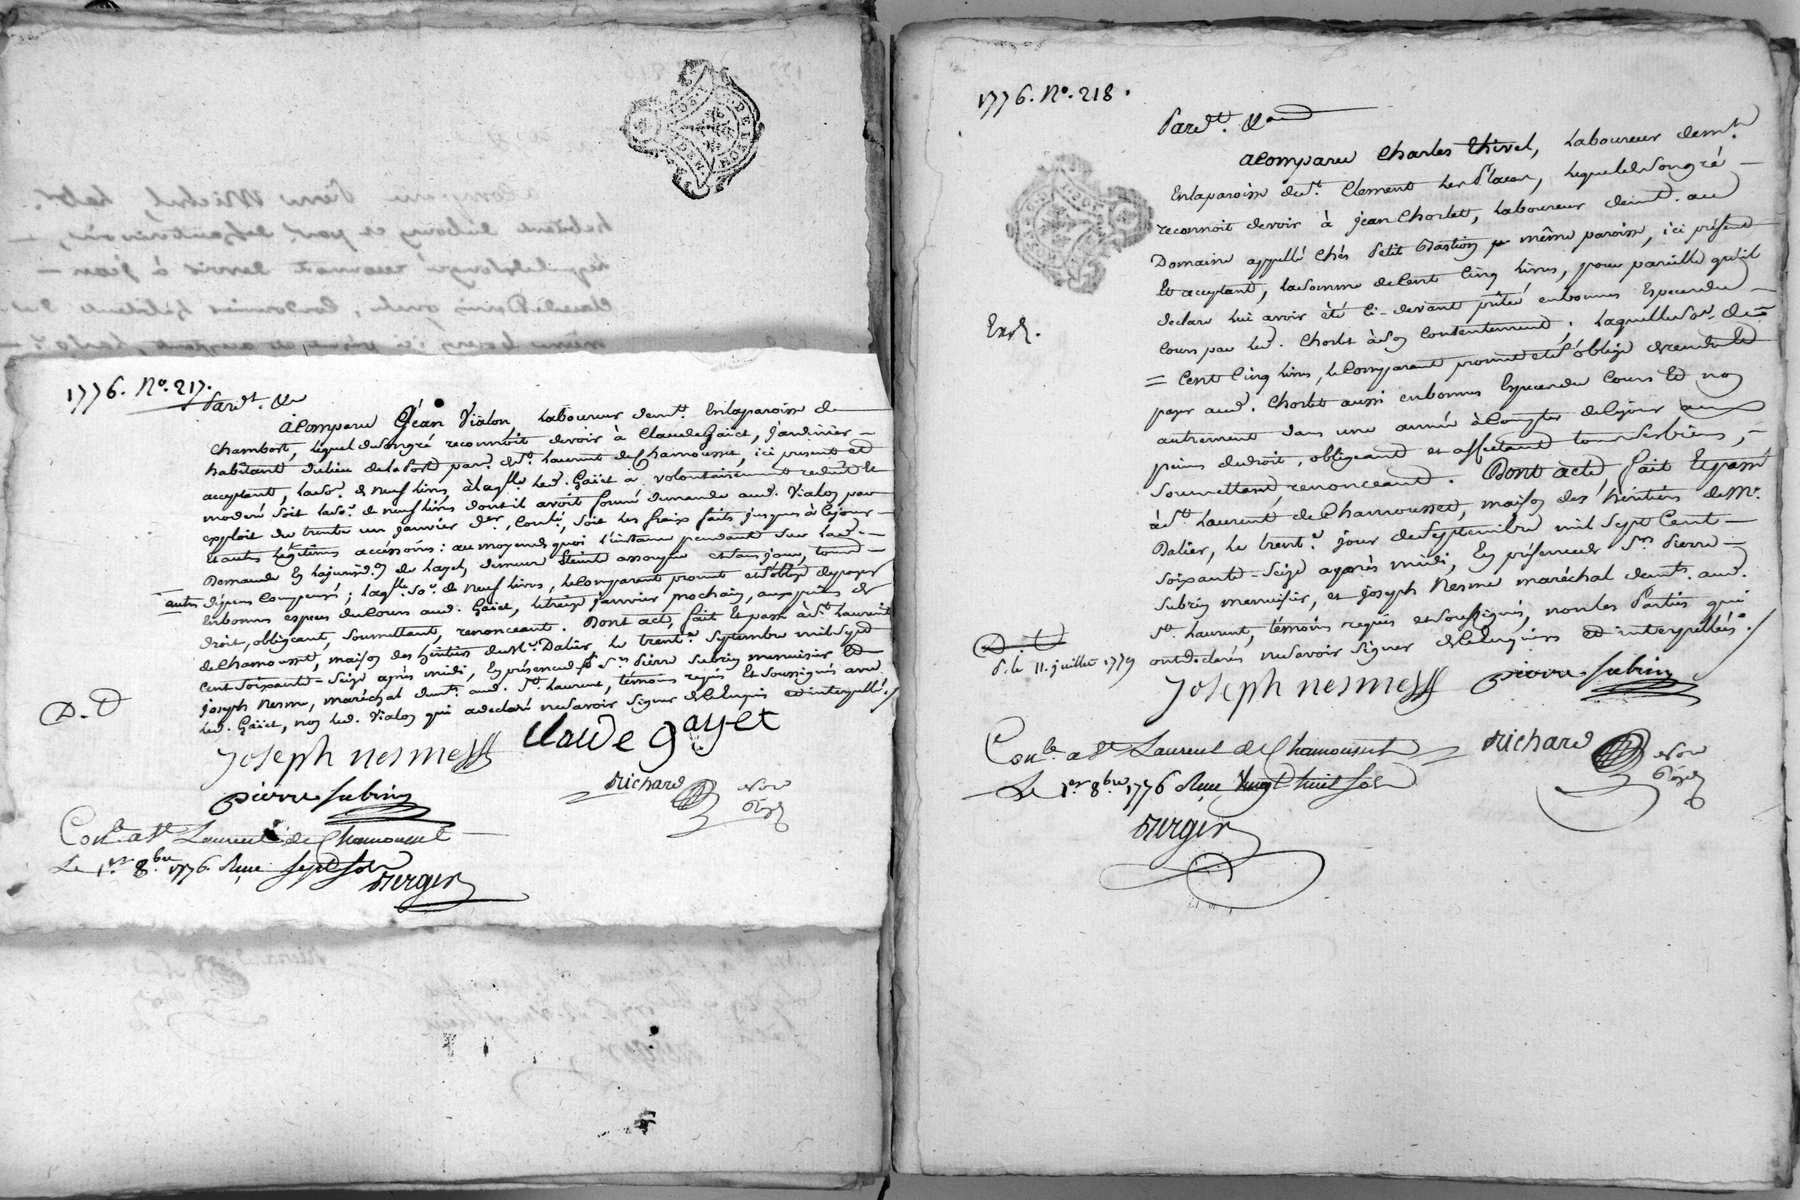 1776. No. 217.
Pardt. &a
a Comparu Jean Vialon, Laboureur demt. En la paroisse de
Chambost, lequel de Son gré reconnoît devoir à Claude Gaïet, Jardinier
habitant du lieu de la Port par. de St. Laurent de Chamousset, ici present et
acceptant, la So. de neuf livres, à laqlle led. Gaïet a volontairement reduit et
moderé soit lad. So. de neuf livres dont il avoit formé demande aud. Vialon par
exploit du trente un janvier der. Conlé, soit les fraix faits jusques à ce jour
et autres légitimes accéssoires: au moyen de quoi l'instance pendante sur lad.
Demande En la jurisd.on de layet, demeure Eteinte assoupie et tous jours, tous
autres dépens compensés; laqlle So. de neuf livres, le Comparant promet et S'oblige de payer
En bonnes espèces du Cours aud. Gaïet, le treize janvier prochain, aux peines de
droit, obligeant, Soumettant, renonceant. Dont acte, fait Et passé à St. Laurent
de Chamousset, maison des héritiers de Mr. Dalier, le trente. Septembre mil Sept
Cent Soixante-Seize après midi, En présence de Srs. Pierre Subrin menuisier Et
Joseph Nesme, maréchal demt. aud. St. Laurent, témoins requis Et Soussignés avec
led. Gaïet, non led. Vialon qui a declaré ne Savoir Signer de ce Enquis et interpellé./
D. D
Joseph nesme
Claude gayet
pierre subrin
Richard
Conlé a St Laurent de Chamousset
Le 1er 8bre 1776 Reçu Sept Sols
Berger
1776. No. 218.
Pardt. &a
a Comparu Charles Thivel, Laboureur demt.
En la paroisse de St. Clement Les Places, lequel de Son gré
reconnoît devoir à Jean Chorlet, Laboureur demt. au
Domaine appellé Chés Petit Bastion même paroisse, ici présent
Et acceptant, la Somme de Cent Cinq livres, pour pareille qu'il
déclare lui avoir été Ci-devant prêtée en bonnes Especes du
Cours par led. Chorlet à Son Contentement; laquelle So. de
Cent Cinq livres, le Comparant promet et S'oblige de rendre Et
payer aud. Chorlet aussi en bonnes Especes du Cours Et non
autrement dans une année à Compter de Ce jour aux
peines de droit, obligeant et affectant tous Ses biens,
Soumettant, renonceant. Dont acte, fait Et passé
à St. Laurent de Chamousset, maison des héritiers de Mr.
Dalier, le trente. jour de Septembre mil Sept Cent
Soixante-Seize après midi, En présence de Srs Pierre
Subrin menuisier, et Joseph Nesme maréchal demts. aud.
St. Laurent, témoins requis et Soussignés, non les Parties qui
ont declarés ne Savoir Signer de ce Enquises et interpellées./
D. D
d. le 11. juillet 1779
Joseph nesme
pierre subrin
Conlé a St Laurent de Chamousset
Richard
Le 1er 8bre 1776 Reçu Vingt huit Sols
Berger